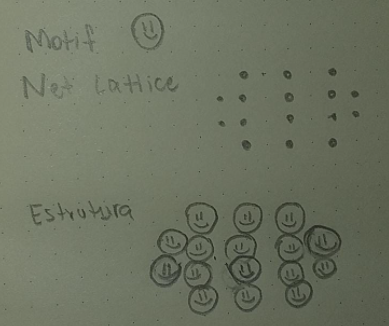 Motif
Net Lattice
Estrutura